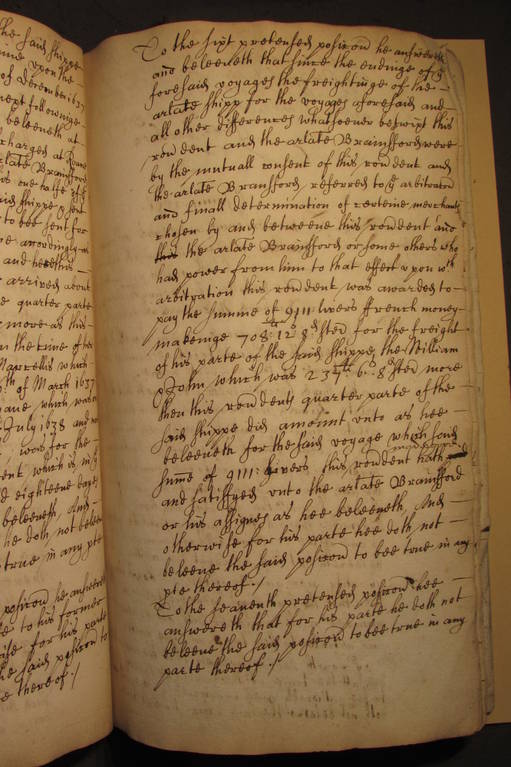 he said shippe
ome upon the
of december 1637
next followinge
beleeveth at
charged at
arlate Brainsford
is one halfe of
said shippe
to bee sent for
re accordingly
and
arrived about
e quarter parte
more as this
in the time of
Marcelis which
th of March 1637
ane which was
July 1638 and
was for the
ent which is
d eighteene
beleeveth, And
he doth not beleeve
true in any pte
posicon he answereth
to his former
ise for his parte
he said posicon to
e thereof:/
To the sixt pretended posicon he answereth
and beleeveth that since the endinge of
foresaid voyages the freightinge of the
arlate shipp for the voyages aforesaid and
all other differences whatsoever betwixt this
rondent and the arlate Brainsford were
by the mutuall consent of this rondent and
the arlate Brainsford, referred to arbitration
and finall determination of certeine merchants
chosen by and betweene this rondent and
this the arlate Brainsford or some others who
had power from him to that effect upon wch
arbitration this rondent was awarded to
pay the summe of 9111 livers ffrench money
makeinge 708li 12s 8d sted for the freight
of his parte of the said shippe, the William
& John, which was 237li 6s 8d sted more
then this rondents quarter parte of the
said shippe did amount unto as hee
beleeveth for the said voyage which said
summe of 9111: livers this rondent hath
and satisfyed unto the arlate Brainsford
or his assignes as hee beleeveth, And
otherwise for his parte hee doth not
beleeve the said posicon to bee true in any
pte thereof:/
To the seaventh pretended posicon hee
answereth that for his parte he doth not
beleeve the said posicon to bee true in any
parte thereof:/